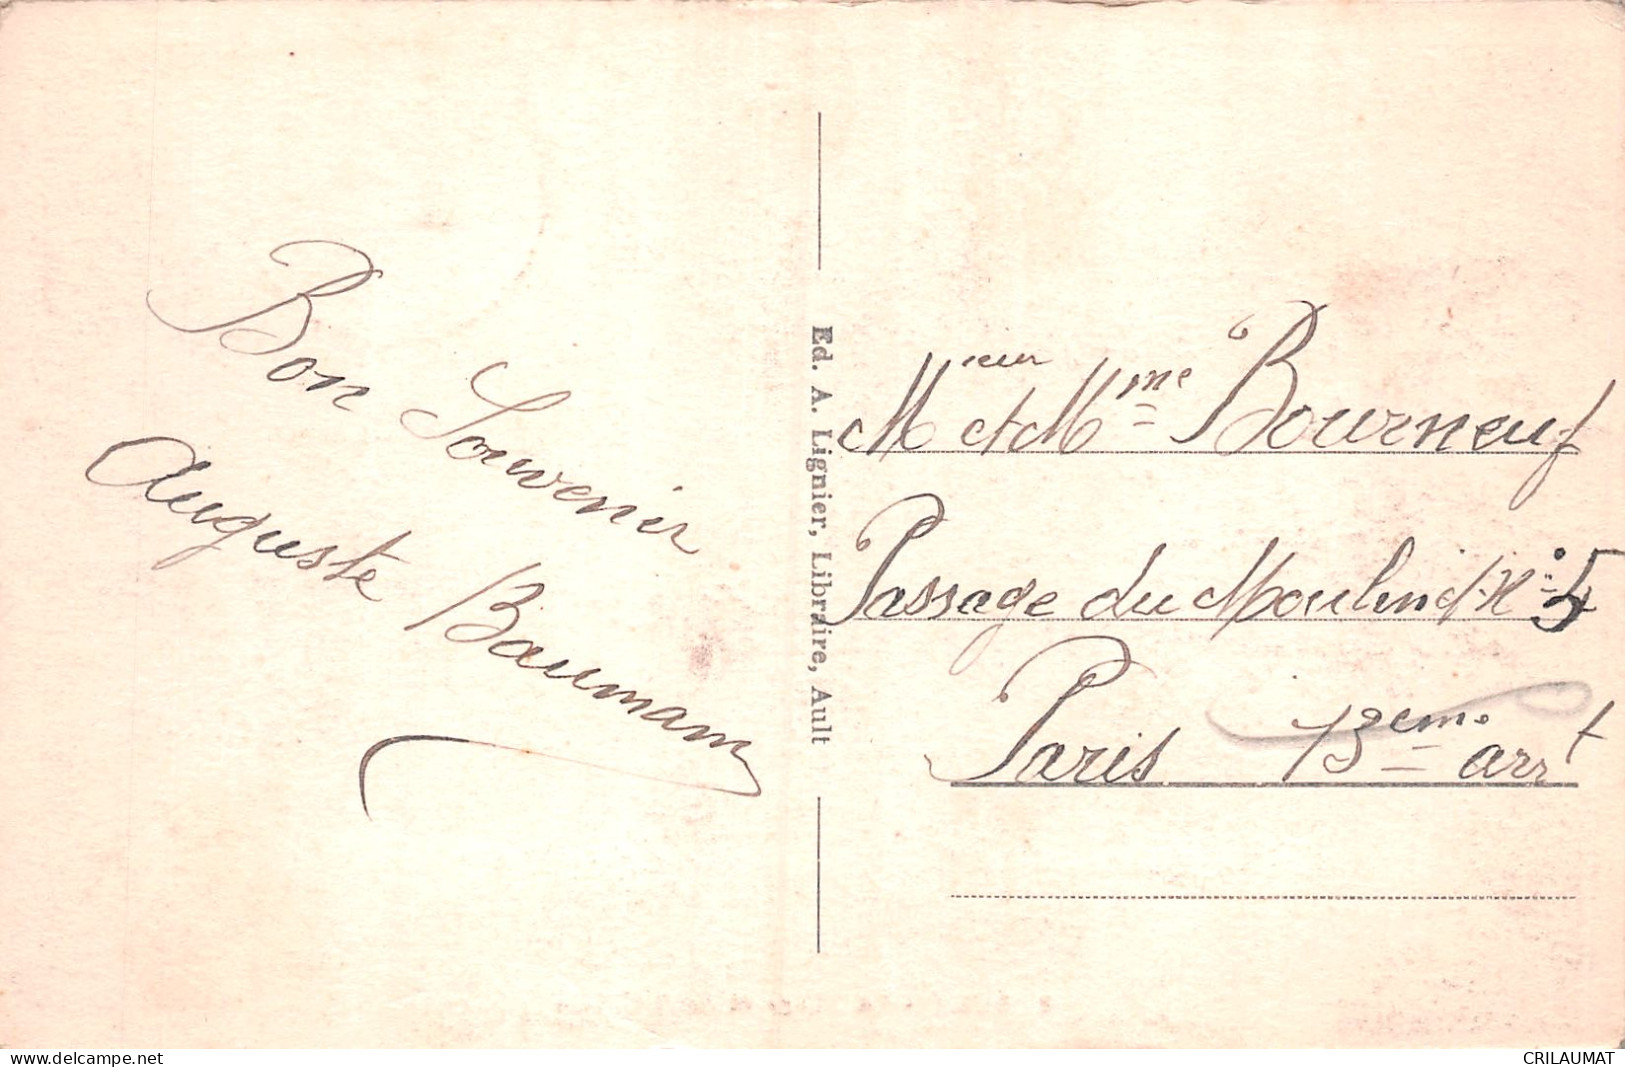 Bon Souvenir
Auguste Baumann
Ed. A. Lignier, Libraire, Ault
Mieur et Mme Bourneuf
Passage du Moulinet N° 5
Paris 13eme arrt
www.delcampe.net
CRILAUMAT